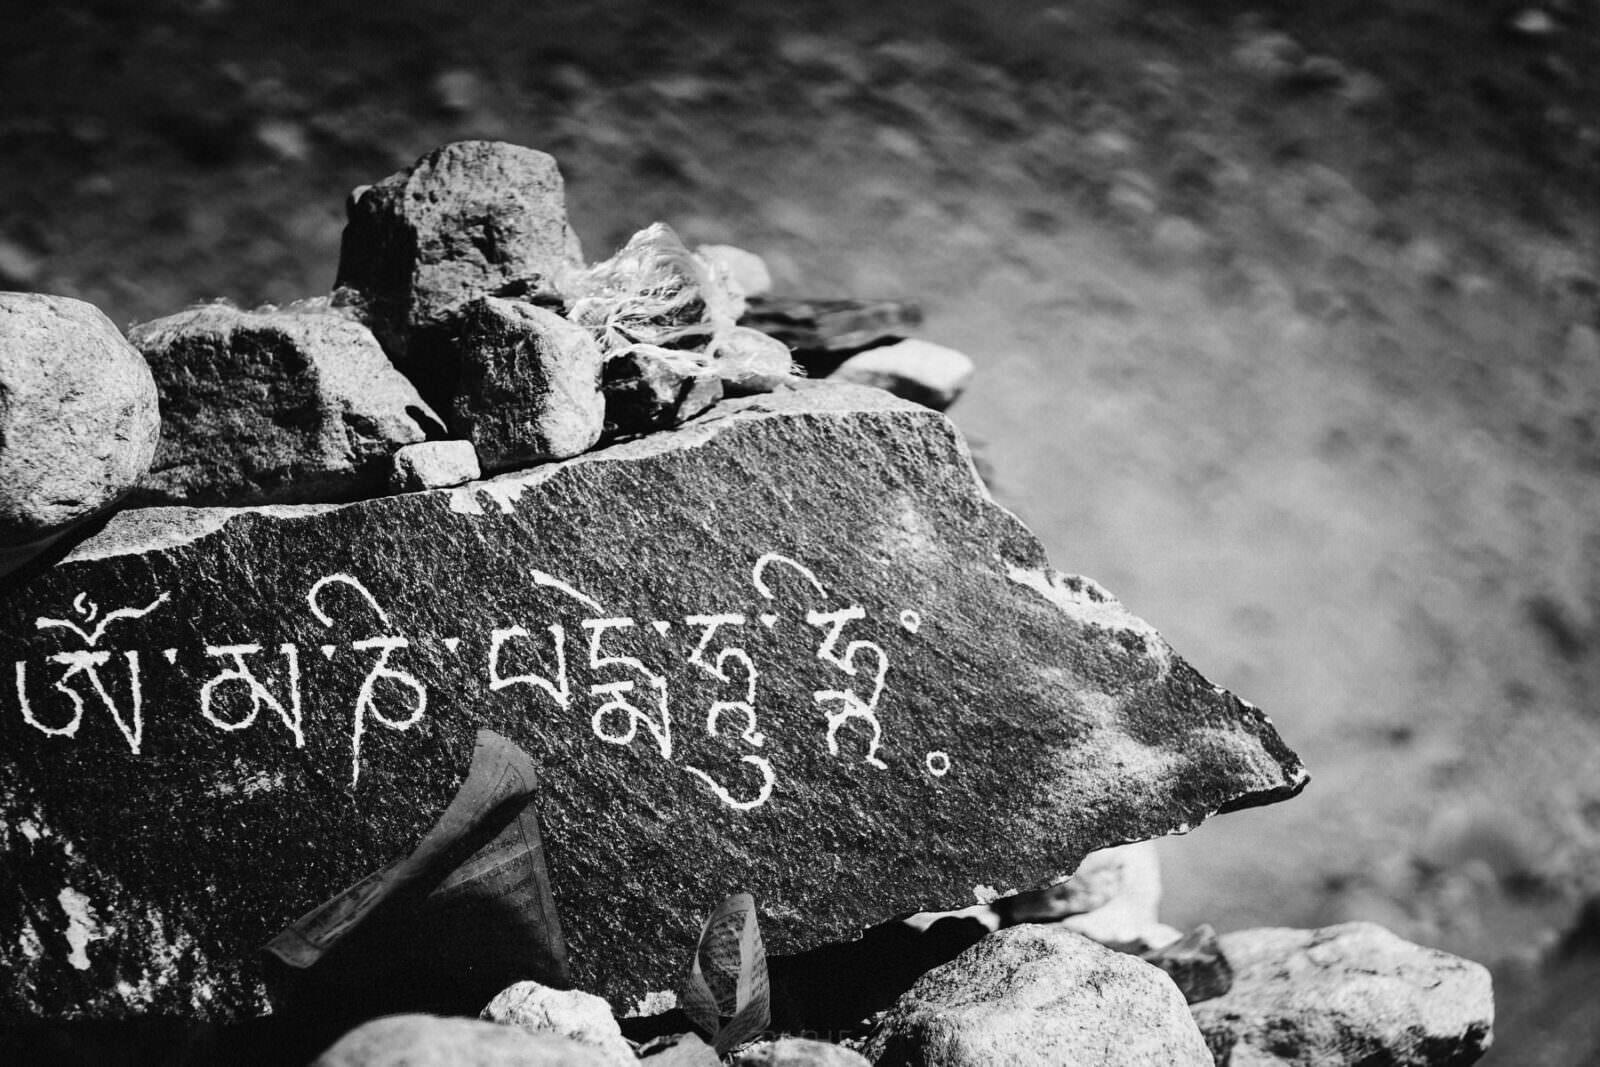 ཨོཾ་མ་ཎི་པདྨེ་ཧཱུ་ཧྲིཿ